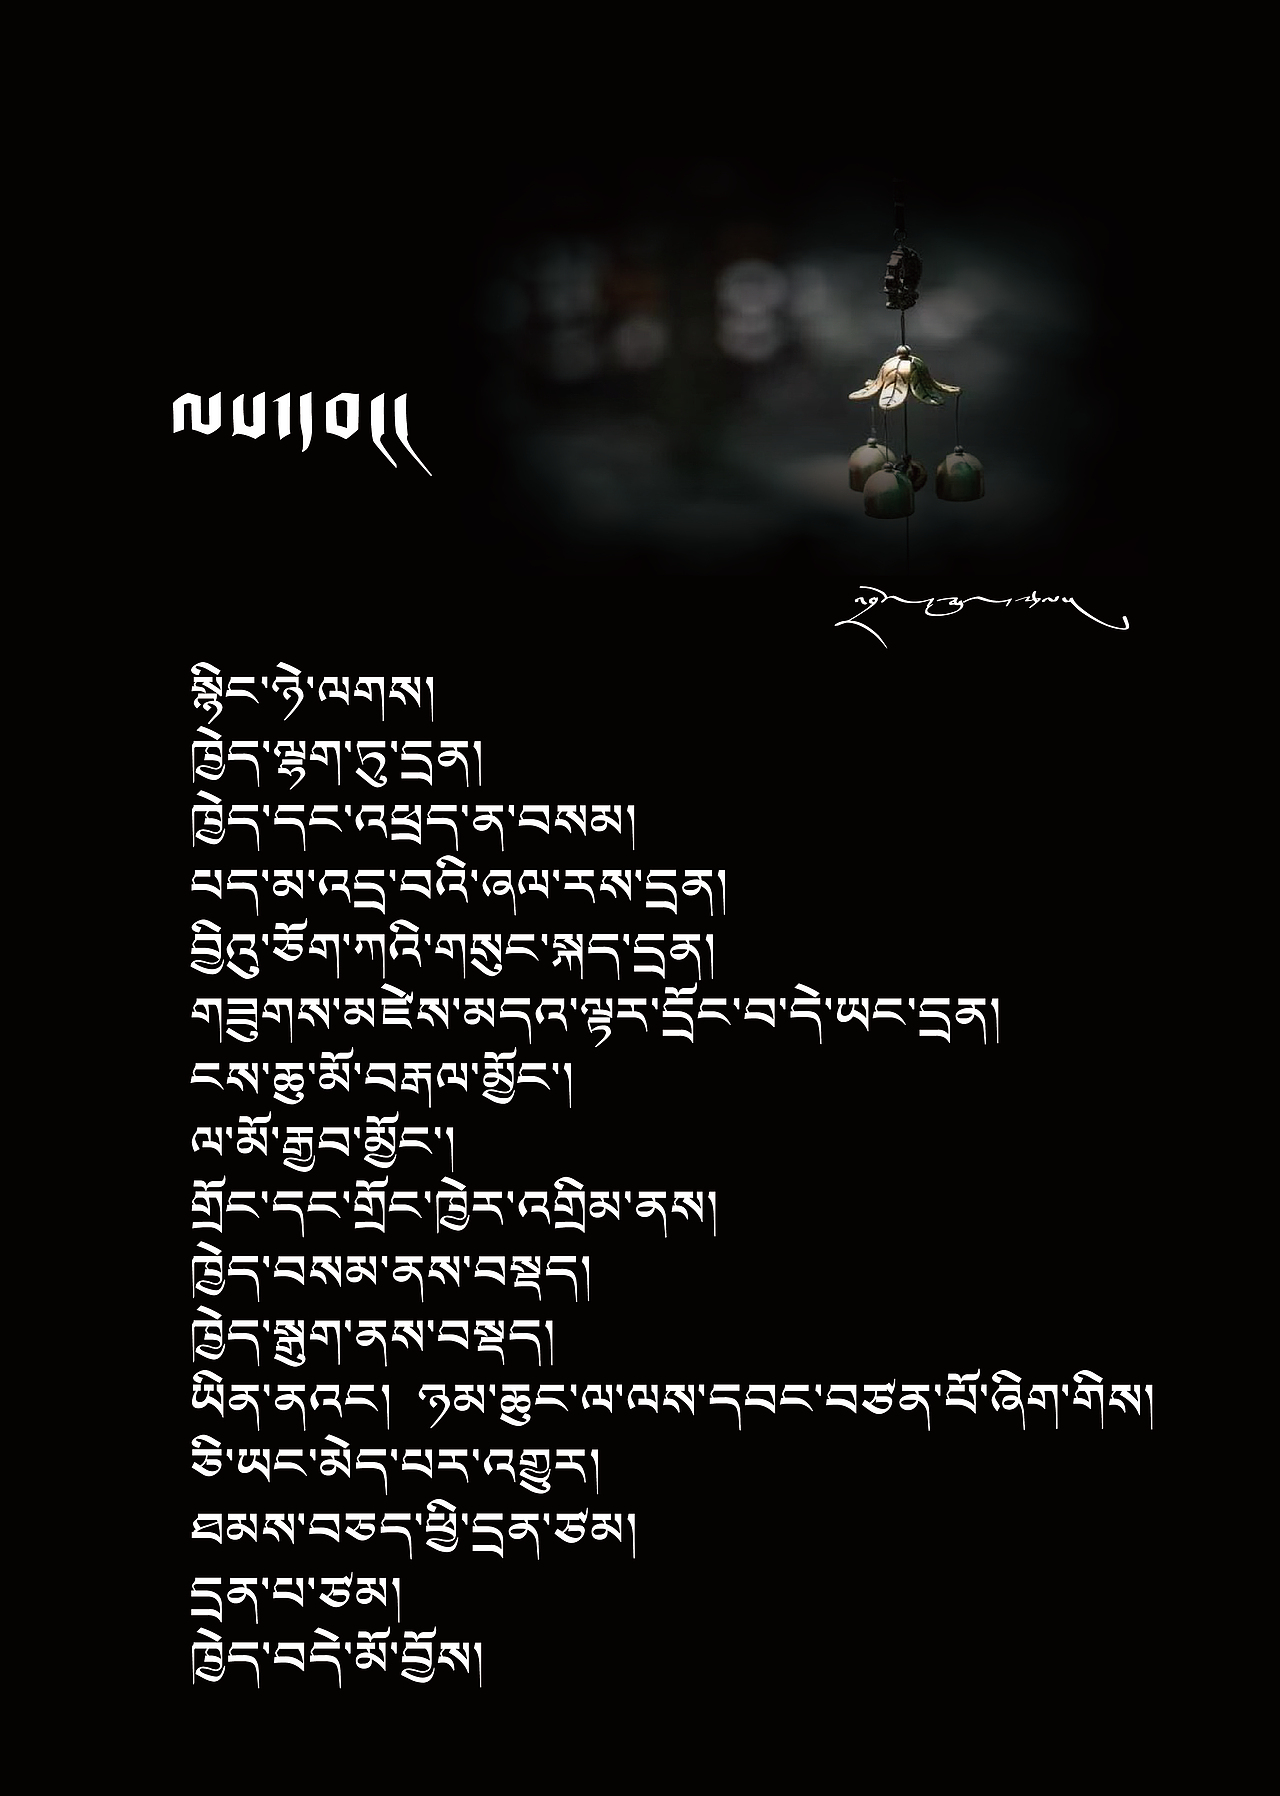 སྙིང་ཉེ་ལགས།
ཁྱེད་ལྷག་ཏུ་དྲན།
ཁྱེད་དང་འཕྲད་ན་བསམ།
པད་མ་འདྲ་བའི་ཞལ་རས་དྲན།
བྱིའུ་ཅོག་ཀའི་གསུང་སྐད་དྲན།
གཟུགས་མཛེས་མདའ་ལྟར་དྲོང་བ་དེ་ཡང་དྲན།
ངས་ཆུ་མོ་བརྒལ་མྱོང་།
ལ་མོ་རྒྱབ་མྱོང་།
གྲོང་དང་གྲོང་ཁྱེར་འགྲིམ་ནས།
ཁྱེད་བསམ་ནས་བསྡད།
ཁྱེད་སྒུག་ནས་བསྡད།
ཡིན་ནའང་། ཉམ་ཆུང་ལ་ལས་དབང་བཙན་པོ་ཞིག་གིས།
ཅི་ཡང་མེད་པར་འགྱུར།
ཐམས་བཅད་ཕྱི་དྲན་ཙམ།
དྲན་པ་ཙམ།
ཁྱེད་བདེ་མོ་བྱོས།